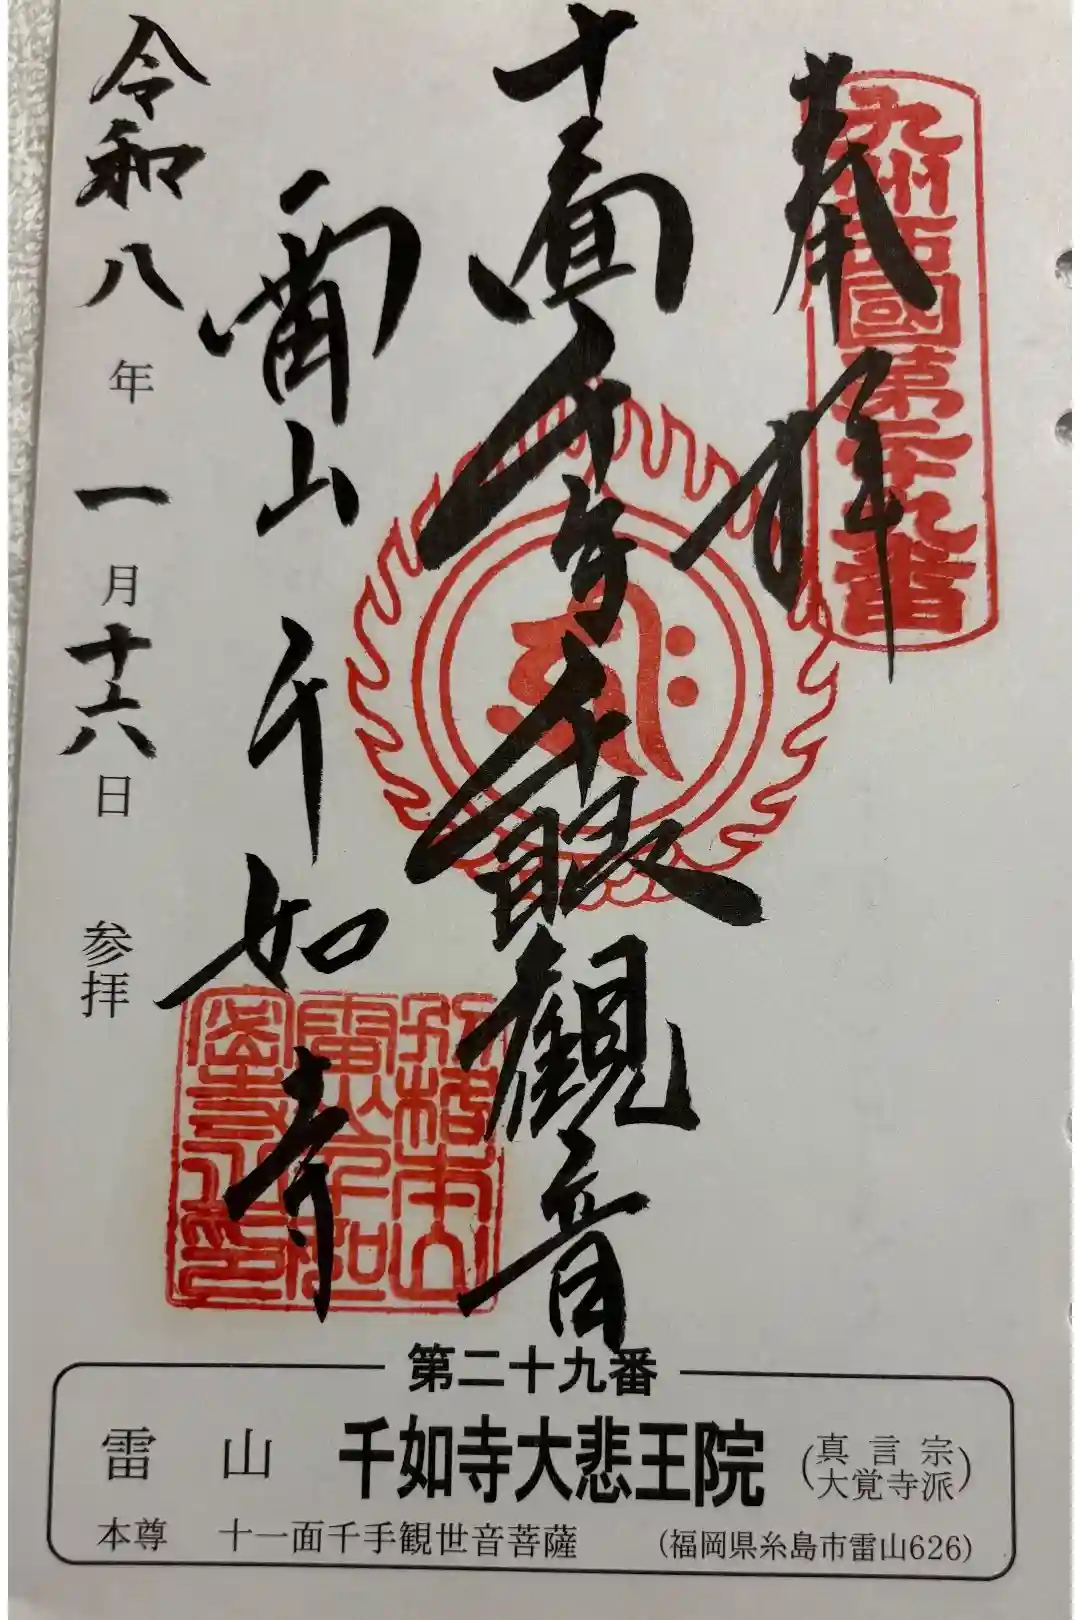 九州西國第二十九番
奉拝
十一面千手千眼観音
雷山千如寺
令和八年一月十六日参拝
第二十九番
雷山 千如寺大悲王院 (真言宗大覚寺派)
本尊 十一面千手観世音菩薩 (福岡県糸島市雷山626)